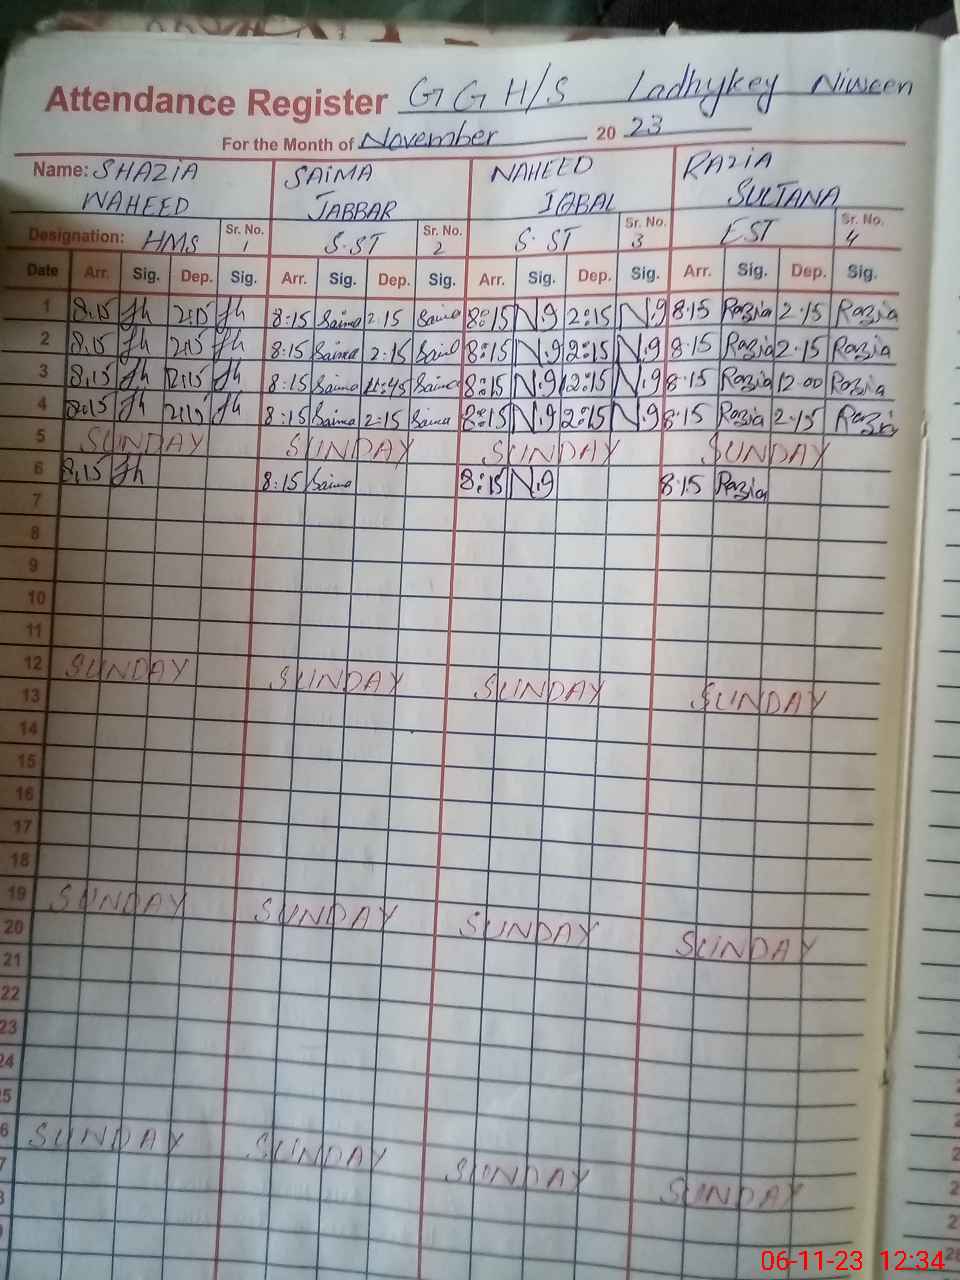 Attendance Register GG H/S Ladhykey Niween
For the Month of November 20 23
Name: SHAZIA WAHEED SAIMA JABBAR NAHEED IQBAL RAZIA SULTANA
Designation: HMS Sr. No. 1 S.ST Sr. No. 2 S.ST Sr. No. 3 EST Sr. No. 4
Date Arr. Sig. Dep. Sig. Arr. Sig. Dep. Sig. Arr. Sig. Dep. Sig. Arr. Sig. Dep. Sig.
1 8:15 2:15 8:15 Saima 2:15 Saima 8:15 N.9 2:15 N.9 8:15 Razia 2:15 Razia
2 8:15 2:15 8:15 Saima 2:15 Saima 8:15 N.9 2:15 N.9 8:15 Razia 2:15 Razia
3 8:15 2:15 8:15 Saima Saima 8:15 N.9 12:15 N.9 8:15 Razia 12:00 Razia
4 8:15 2:15 8:15 Saima 2:15 Saima 8:15 N.9 2:15 N.9 8:15 Razia 2:15 Razia
5 SUNDAY SUNDAY SUNDAY SUNDAY
6 8:15 8:15 Saima 8:15 N.9 8:15 Razia
7
8
9
10
11
12 SUNDAY SUNDAY SUNDAY SUNDAY
13
14
15
16
17
18
19 SUNDAY SUNDAY SUNDAY SUNDAY
20
21
22
23
24
25
6 SUNDAY SUNDAY SUNDAY SUNDAY
06-11-23 12:34